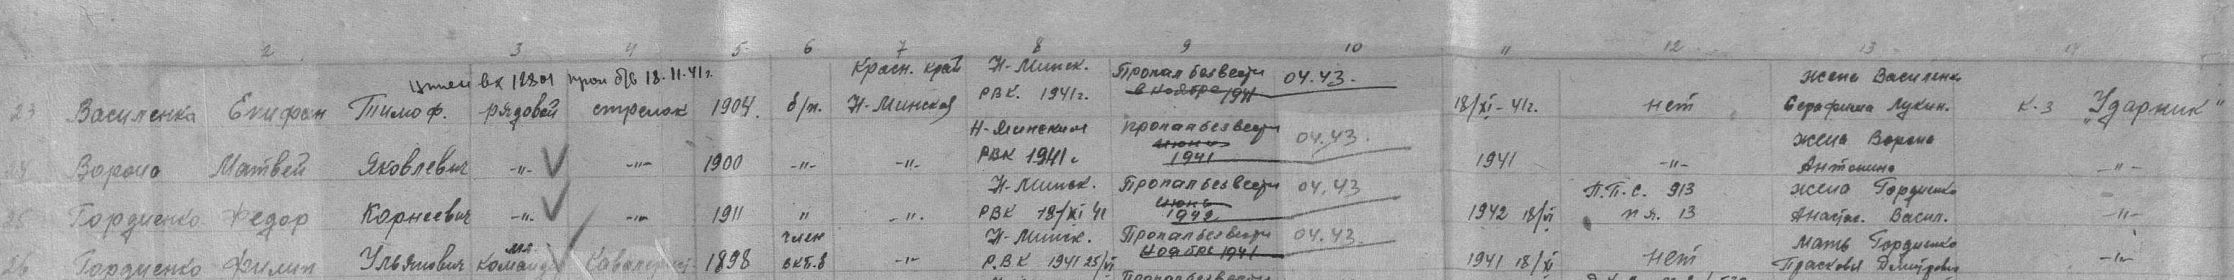 2 3 4 5 6 7 8 9 10 11 12 13 14
18.11.41г.
23 Василенка Епифан Тимоф. рядовой стрелок 1904. б/п. Красн. край Н-Минской Н-Минск. РВК. 1941г. Пропал без вести в ноябре 1941 04.43. 18/XI-41г. нет жена Василенка Серафима Лукин. к-з "Ударник"
24 Ворона Матвей Яковлевич -"- -"- 1900 -"- -"- Н-Минским РВК 1941г пропал без вести июнь 1941 04.43. 1941 -"- жена Ворона Антонина -"-
25 Гордиенко Федор Корнеевич -"- -"- 1911 " -"- Н-Минск. РВК 18/XI 41 Пропал без вести июнь 1942 04.43 1942 18/VI П.П.С. 913 п.я. 13 жена Гордиенко Анаст. Васил. -"-
26 Гордиенко Филип Ульянович 1898 член вкп.б -"- Н-Минск. РВК 1941 Пропал без вести ноябрь 1941 04.43. 1941 18/XI нет Мать Гордиенко Прасковья -"-